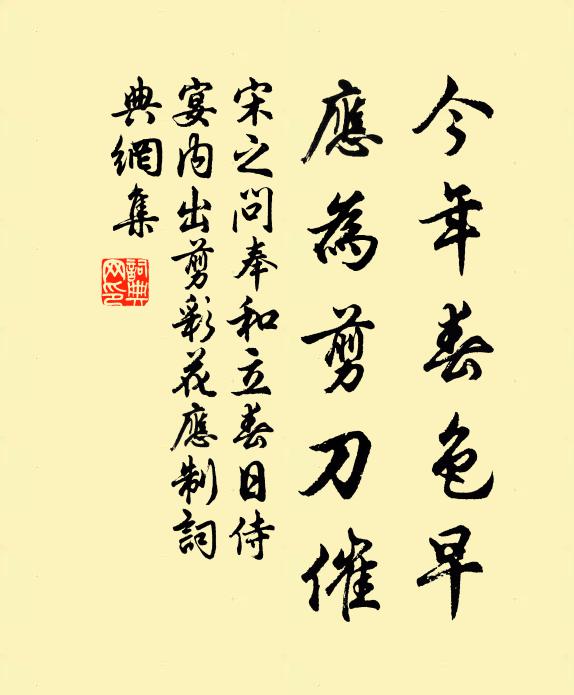 今年春色早
應為剪刀催
宋之問奉和立春日侍
宴內出剪彩花應制詞
典網集
詞典网印